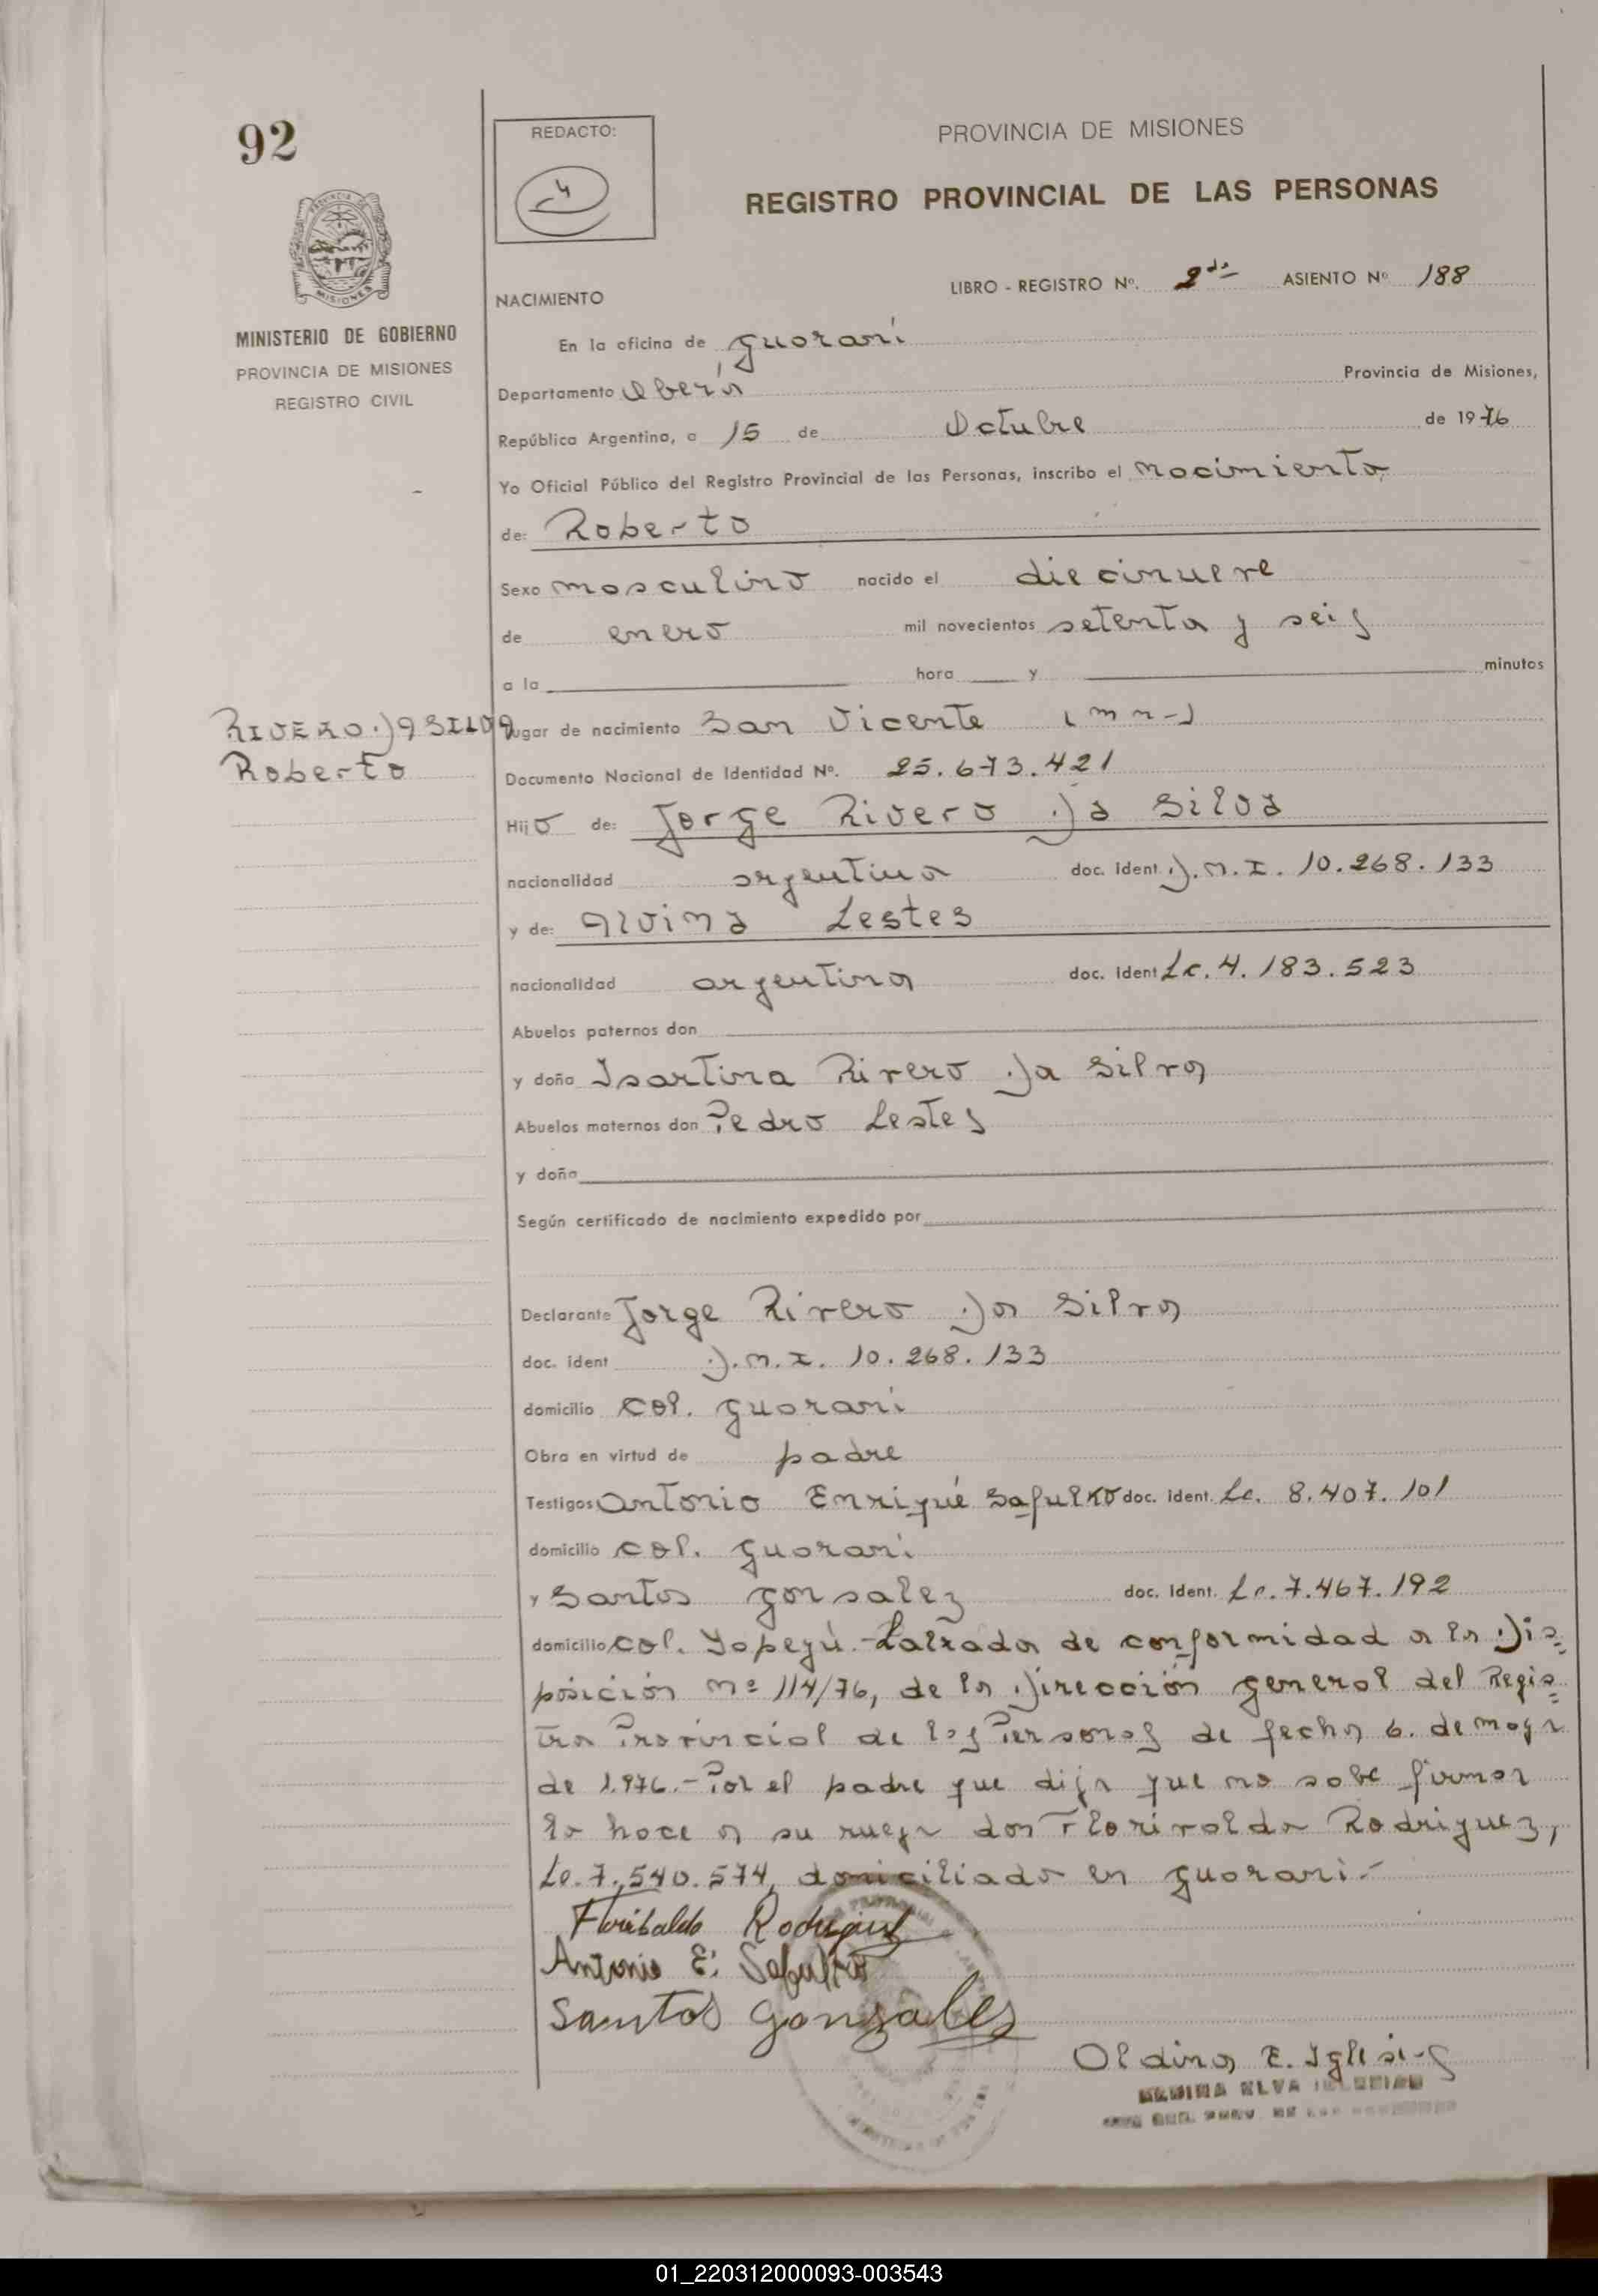 92
REDACTO:
PROVINCIA DE MISIONES
REGISTRO PROVINCIAL DE LAS PERSONAS
MISIONES
MINISTERIO DE GOBIERNO
PROVINCIA DE MISIONES
REGISTRO CIVIL
LIBRO - REGISTRO Nº. 2do ASIENTO Nº 188
NACIMIENTO
En la oficina de Guarani
Departamento Oberá Provincia de Misiones,
República Argentina, a 15 de Octubre de 1976
Yo Oficial Público del Registro Provincial de las Personas, inscribo el nacimiento
de: Roberto
Sexo masculino nacido el diecinueve
de enero mil novecientos setenta y seis
a la hora y minutos
RIVERO DA SILVA
Roberto
Lugar de nacimiento San Vicente (mn-)
Documento Nacional de Identidad Nº. 25.673.421
Hijo de: Jorge Rivero Da Silva
nacionalidad argentina doc. ident D.N.I. 10.268.133
y de: Alvina Lestes
nacionalidad argentina doc. ident Lc. 4.183.523
Abuelos paternos don
y doña Isartina Rivero Da Silva
Abuelos maternos don Pedro Lestes
y doña
Según certificado de nacimiento expedido por
Declarante Jorge Rivero Da Silva
doc. ident D.N.I. 10.268.133
domicilio Col. Guarani
Obra en virtud de padre
Testigos Antonio Enrique Safulko doc. ident. Le. 8.407.101
domicilio Col. Guarani
y Santos Gonsalez doc. ident. Le. 7.467.192
domicilio Col. Yapeyú.- Labrada de conformidad a la Dis=
posición nº 114/76, de la Dirección general del Regis=
tro Provincial de las Personas de fecha 6. de mayo
de 1.976.- Por el padre que dijo que no sabe firmar
lo hace a su ruego don Florivaldo Rodriguez,
Le. 7.540.574, domiciliado en Guarani.-
Floribaldo Rodriguez
Antonio E. Safulko
Santos Gonzales
Oldina E. Iglesias
ELVA IGLESIAS
01_220312000093-003543